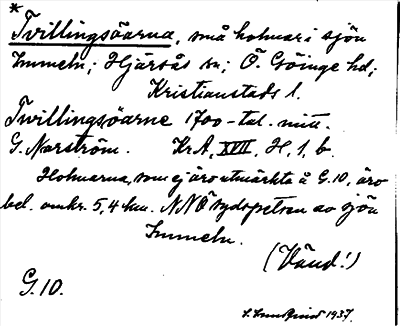 *
Tvillingsöarna, små holmar i sjön
Immeln; Hjärsås sn; Ö. Göinge hd;
Kristianstads l.
Tvillingsöarne 1700-tal. mitt.
G. Norström. Kr.A, XVII, H, 1, b.
Holmarna, som ej äro utmärkta å G.10, äro
bel. omkr. 5,4 km. NNÖ sydspetsen av sjön
Immeln.
(Vänd!)
G.10.
1937.